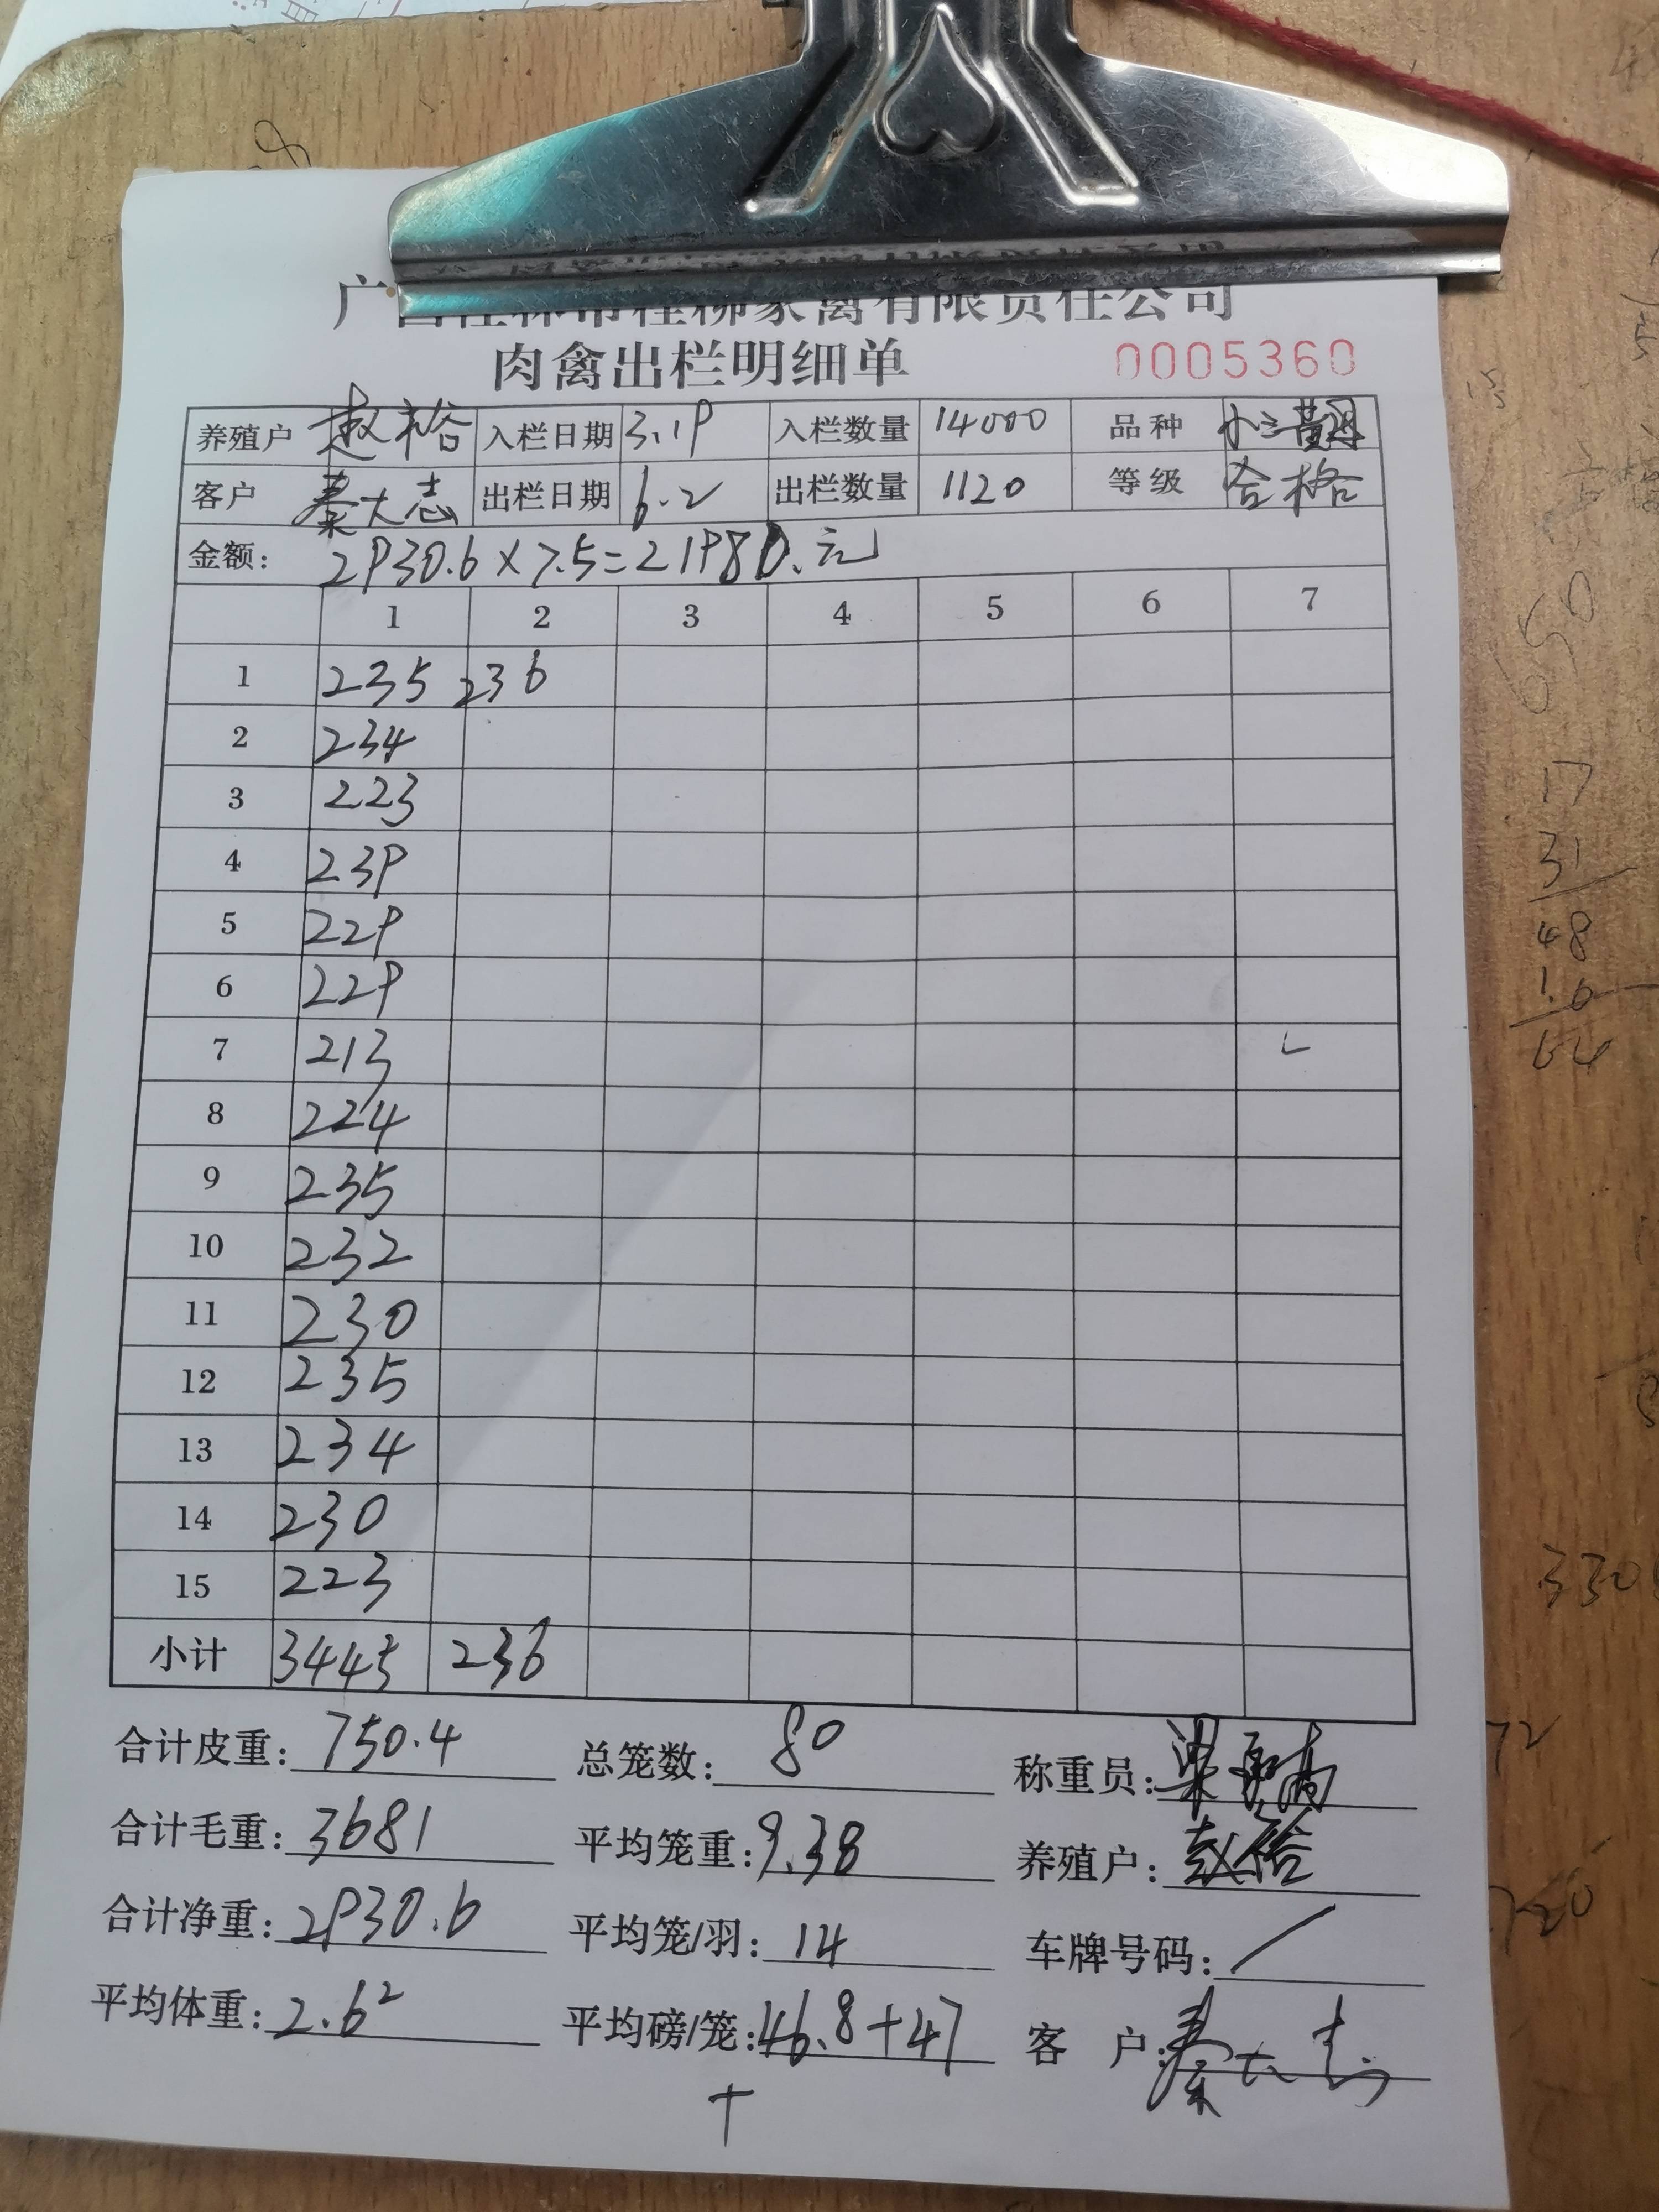 广西桂林市桂柳家禽有限责任公司
肉禽出栏明细单 0005360
养殖户 赵裕 入栏日期 3.19 入栏数量 14000 品种
客户 秦大志 出栏日期 6.2 出栏数量 1120 等级 合格
金额: 2930.6×7.5=21980.元
1 2 3 4 5 6 7
1 235 236
2 234
3 223
4 239
5 229
6 229
7 213
8 224
9 235
10 232
11 230
12 235
13 234
14 230
15 223
小计 3445 236
合计皮重: 750.4 总笼数: 80 称重员:
合计毛重: 3681 平均笼重: 9.38 养殖户: 赵裕
合计净重: 2930.6 平均笼/羽: 14 车牌号码: /
平均体重: 2.62 平均磅/笼: 46.8+47 客 户: 秦大志
17
31
48
1.6
64